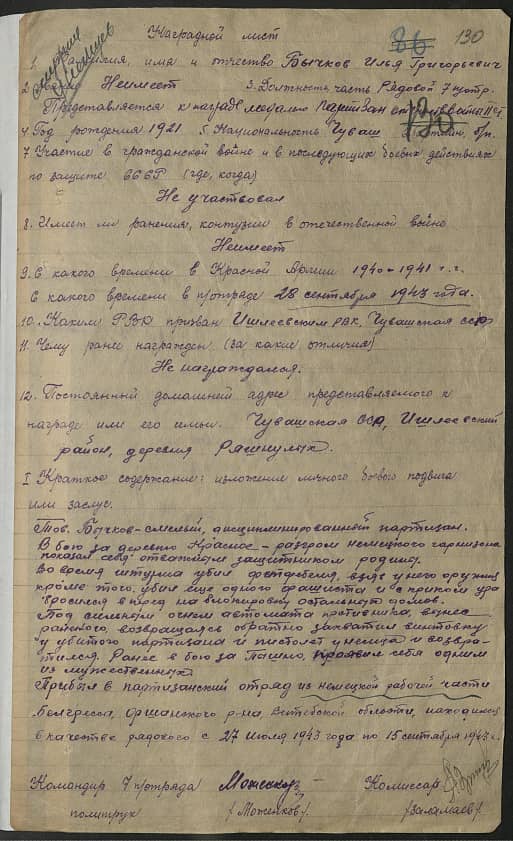 Наградной лист
86 130
1. Фамилия, имя и отчество Бычков Илья Григорьевич
2. Неимеет 3. Должность, часть Рядовой 7 п/отр.
Представляется к награде медалью Партизан
4. Год рождения 1921 5. Национальность Чуваш б/п.
7 Участие в гражданской войне и в последующих боевых действиях
по защите СССР (где, когда)
Не участвовал
8. Имеет ли ранения, контузии в отечественной войне
Неимеет
9. С какого времени в Красной Армии 1940-1941 г.г.
С какого времени в п/отряде 28 сентября 1943 года.
10. Каким РВК призван Ишлеевским РВК, Чувашская ССР
11. Чему ранее награжден (за какие отличия)
Не награждался.
12. Постоянный домашний адрес представляемого к
награде или его семьи. Чувашская ССР, Ишлеевский
район, деревня
I Краткое содержание: изложение личного боевого подвига
или заслуг.
Тов. Бычков-смелый, дисциплинированный партизан.
В бою за деревню Красное - разгром немецкого гарнизона
показал себя отважным защитником родины.
Во время штурма убил фельдфебеля, взяв у него оружие
кроме того, убил еще одного фашиста и с криком ура
бросился вперед на блокировку остальных домов.
Под сильным огнем автомата противника, вынес
раненого, возвращаясь обратно захватил винтовку
у убитого партизана и пистолет у немца и возвра-
тился. Ранее в бою за Пашно, проявил себя одним
из мужественных
Прибыл в партизанский отряд из немецкой рабочей части
Оршанского р-на, Витебской области, находился
в качестве рядового с 27 июля 1943 года по 15 сентября 1943 г.
Командир 7 п/отряда Комиссар
политрук /Моженков/. /Заламаев/